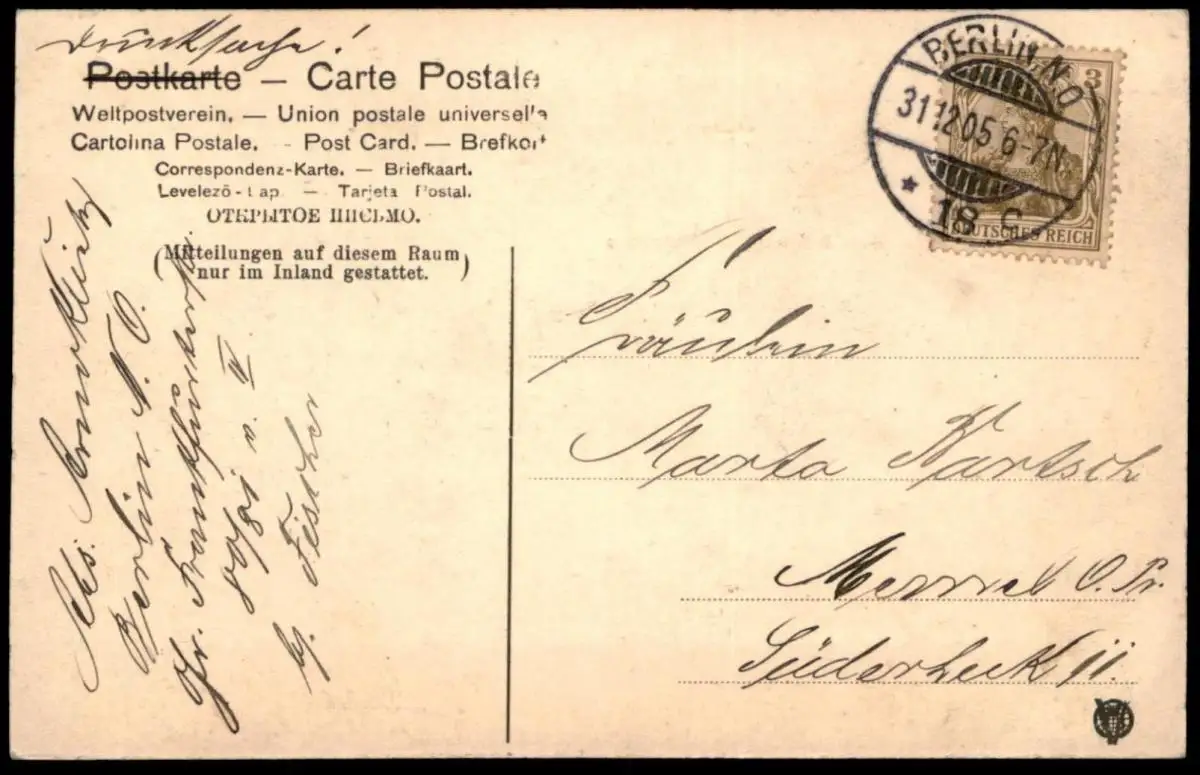 Drucksache!
Postkarte — Carte Postale
Weltpostverein. — Union postale universelle
Cartolina Postale. - Post Card. — Brefkort
Correspondenz-Karte. — Briefkaart.
Levelező-Lap — Tarjeta Postal.
ОТКРЫТОЕ ПИСЬМО.
(Mitteilungen auf diesem Raum
nur im Inland gestattet.)
Abs.
Berlin N.O.
Gr. Frankfurterstr.
80/81 v. IV
b. Fischer
BERLIN N.O.
31.12.05 6-7N.
* 18 c
3
DEUTSCHES REICH
Fräulein
Marta Bartsch
Memel O. Pr.
Süderhuck 11.